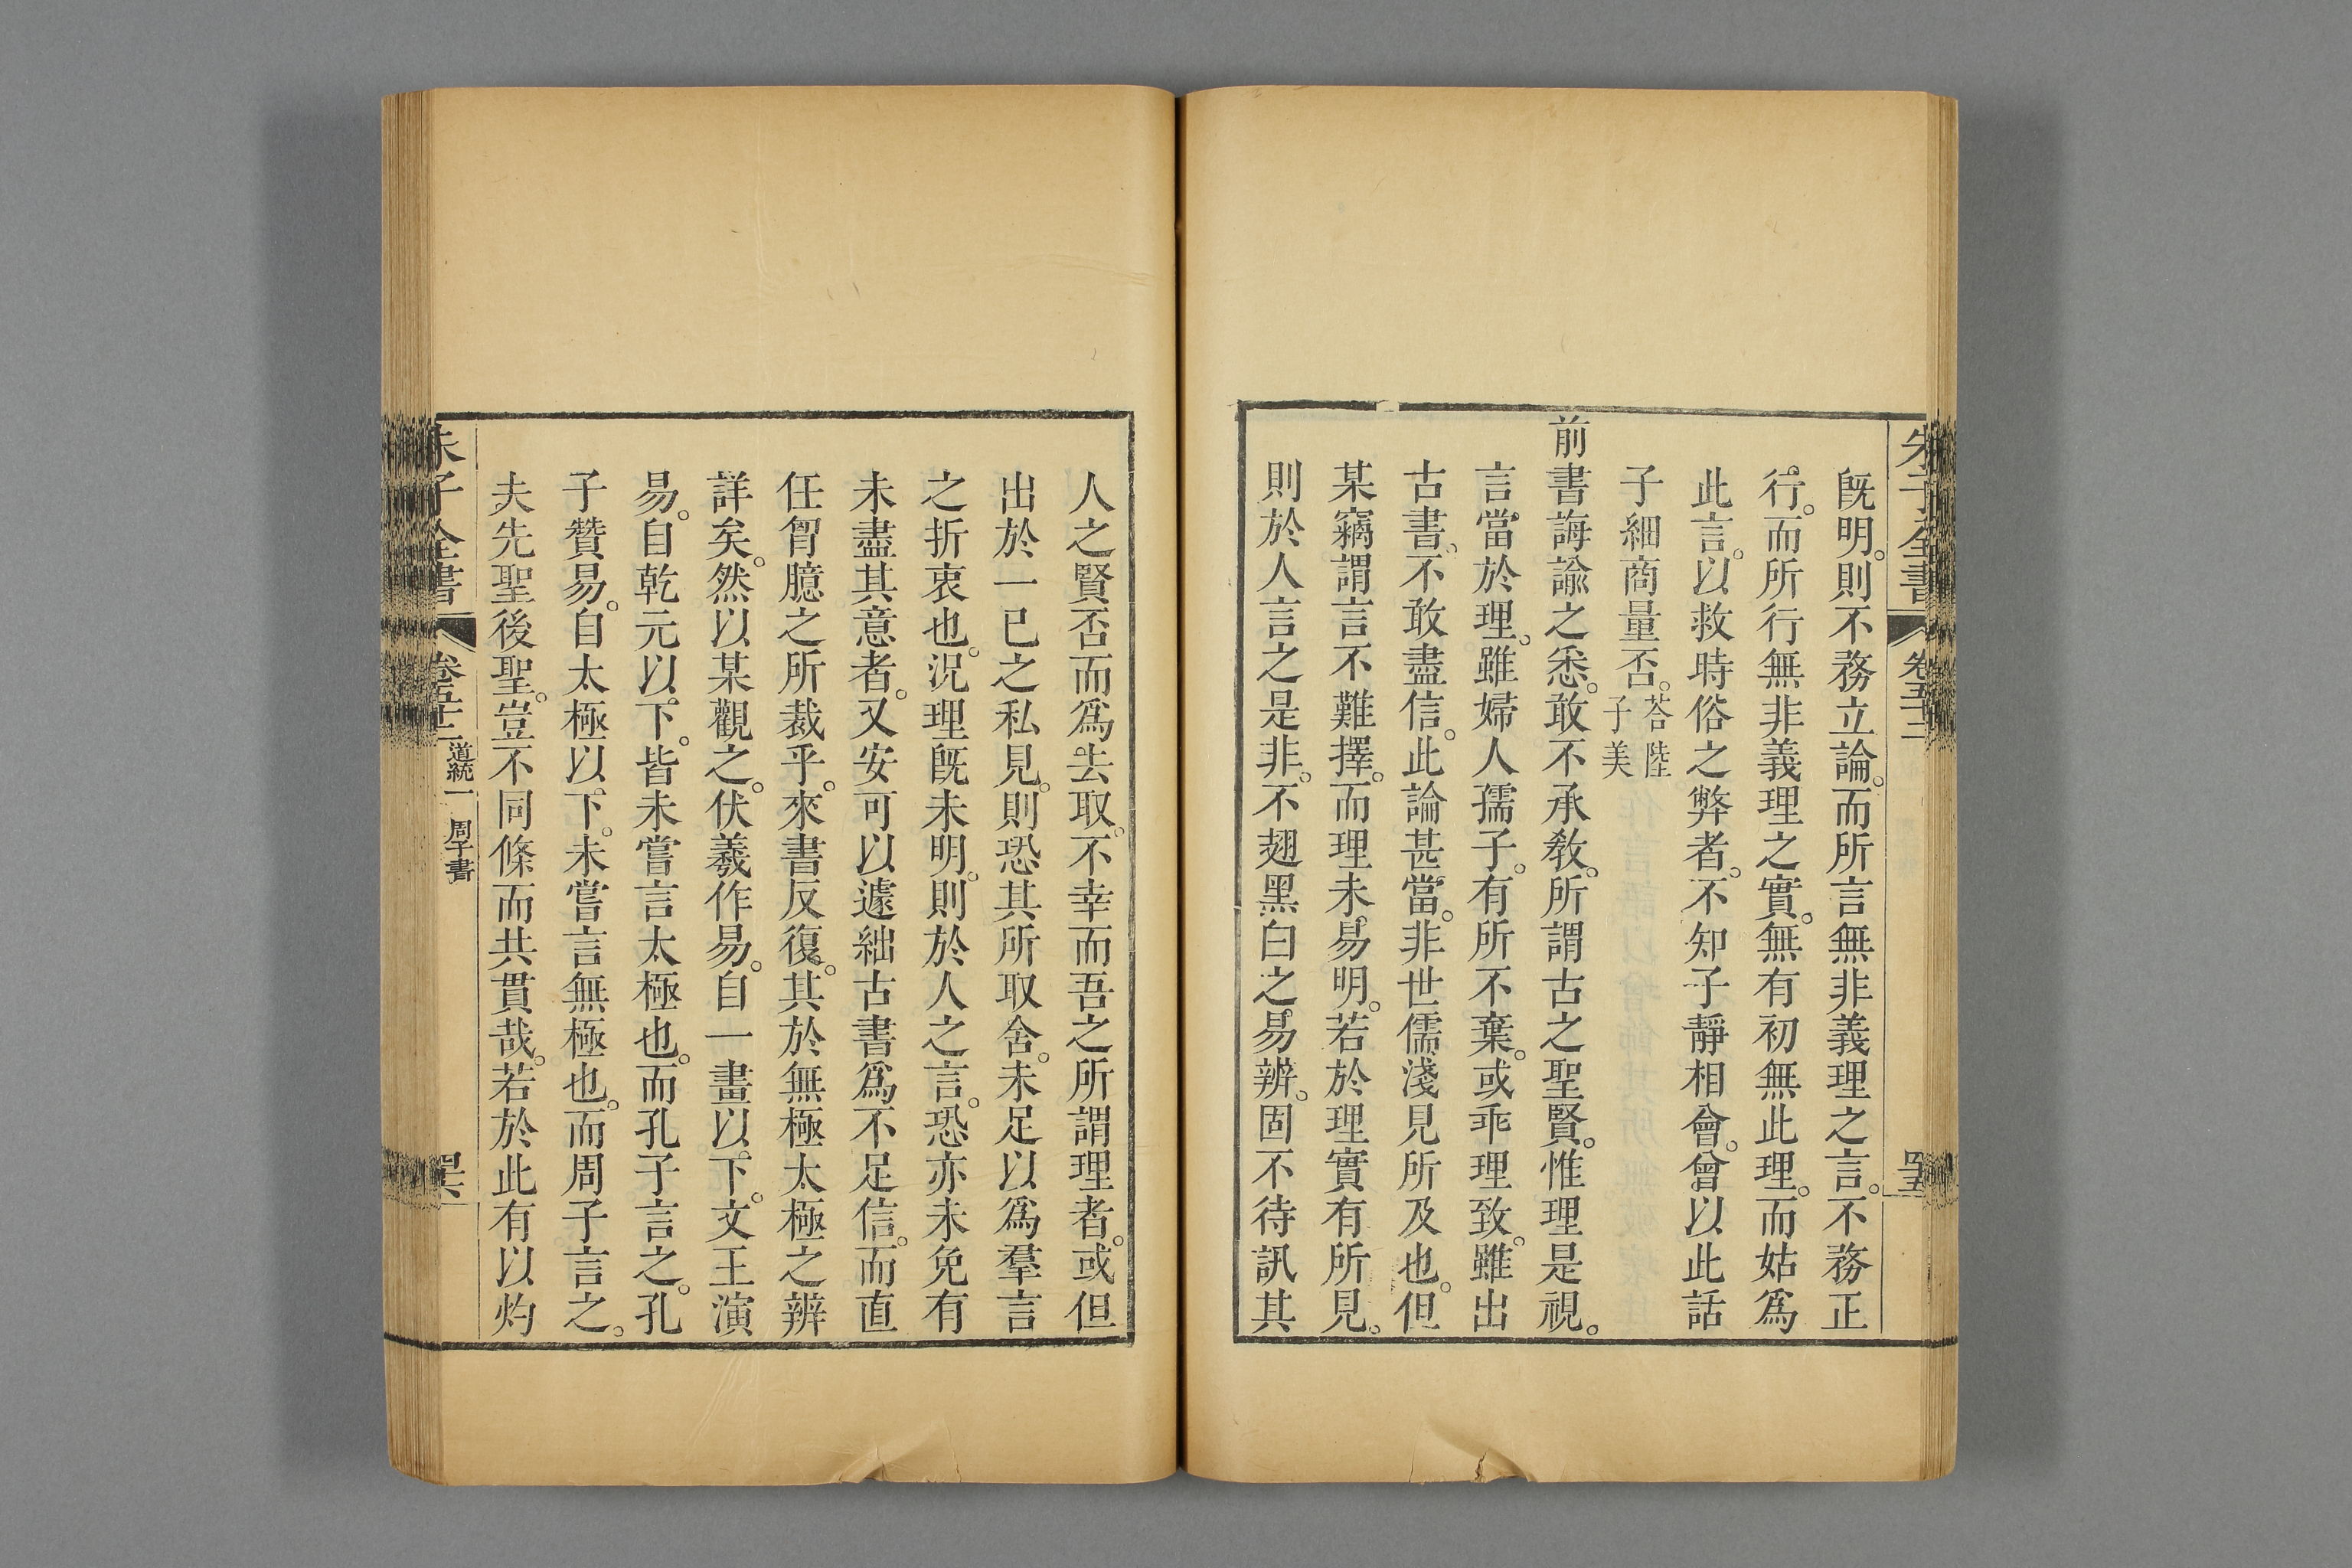 朱子全書 卷五十二
既明。則不務立論。而所言無非義理之言。不務正
行。而所行無非義理之實。無有初無此理。而姑爲
此言。以救時俗之弊者。不知子靜相會。曾以此話
子細商量否。荅陸子美
前書誨諭之悉。敢不承教。所謂古之聖賢。惟理是視。
言當於理。雖婦人孺子。有所不棄。或乖理致。雖出
古書。不敢盡信。此論甚當。非世儒淺見所及也。但
某竊謂言不難擇。而理未易明。若於理實有所見。
則於人言之是非。不翅黑白之易辨。固不待訊其
人之賢否而爲去取。不幸而吾之所謂理者。或但
出於一己之私見。則恐其所取舍。未足以爲羣言
之折衷也。況理既未明。則於人之言。恐亦未免有
未盡其意者。又安可以遽絀古書爲不足信。而直
任胷臆之所裁乎。來書反復。其於無極太極之辨
詳矣。然以某觀之。伏羲作易。自一畫以下。文王演
易。自乾元以下。皆未嘗言太極也。而孔子言之。孔
子贊易。自太極以下。未嘗言無極也。而周子言之。
夫先聖後聖。豈不同條而共貫哉。若於此有以灼
朱子全書 卷五十二 道統一 周子書